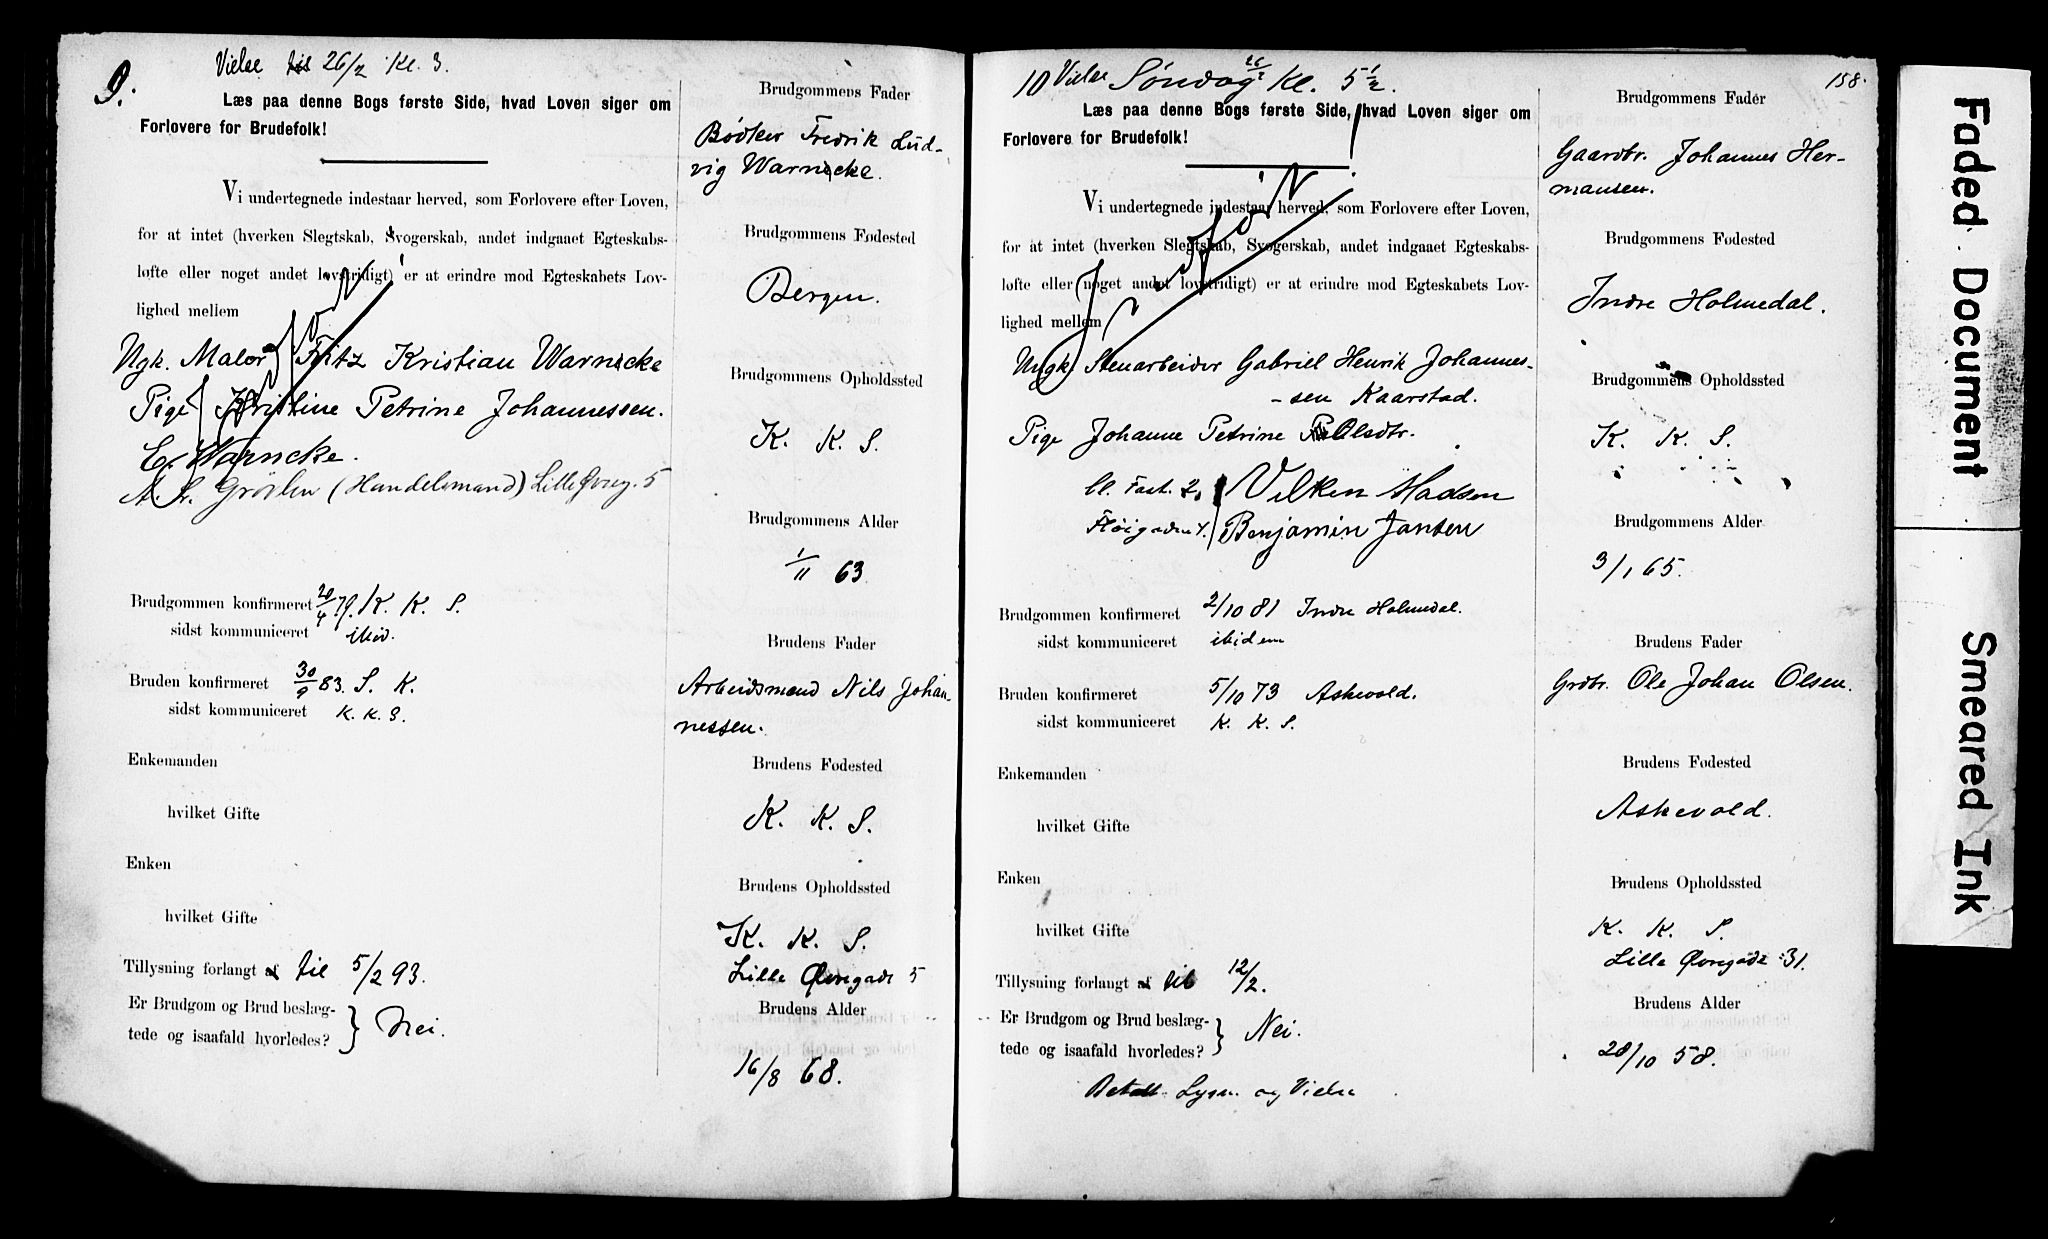 9.
Vielse til 26/2 Kl. 3.
Læs paa denne Bogs første Side, hvad Loven siger om
Forlovere for Brudefolk!
Vi undertegnede indestaar herved, som Forlovere efter Loven,
for at intet (hverken Slegtskab, Svogerskab, andet indgaaet Egteskabs-
løfte eller noget andet lovstridigt) er at erindre mod Egteskabets Lov-
lighed mellem
Ugk. Maler Fritz Kristian Warnecke
Pige Kristine Petrine Johannessen.
E. Warncke.
(Handelsmand) Lille Øvreg. 5
Brudgommen konfirmeret 20/4 79. K. K. S.
sidst kommuniceret ibid.
Bruden konfirmeret 30/9 83. S. K.
sidst kommuniceret K. K. S.
Enkemanden
hvilket Gifte
Enken
hvilket Gifte
Tillysning forlangt af til 5/2 93.
Er Brudgom og Brud beslæg-
tede og isaafald hvorledes? } Nei.
Brudgommens Fader
Bødker Fredrik Lud-
vig Warnecke.
Brudgommens Fødested
Bergen.
Brudgommens Opholdssted
K. K. S.
Brudgommens Alder
1/11 63
Brudens Fader
Arbeidsmand Nils Johan-
nessen.
Brudens Fødested
K. K. S.
Brudens Opholdssted
K. K. S.
Lille Øvregade 5
Brudens Alder
16/8 68.
10 Vielse Søndag 26/2 Kl. 5 1/2.
Læs paa denne Bogs første Side, hvad Loven siger om
Forlovere for Brudefolk!
Vi undertegnede indestaar herved, som Forlovere efter Loven,
for at intet (hverken Slegtskab, Svogerskab, andet indgaaet Egteskabs-
løfte eller noget andet lovstridigt) er at erindre mod Egteskabets Lov-
lighed mellem
Ungk. Stenarbeider Gabriel Henrik Johannes-
-sen Kaarstad.
Pige Johanne Petrine Olsdtr.
Vilken Madsen
Fløigaden Benjamin Jansen
Brudgommen konfirmeret 2/10 81 Indre Holmedal.
sidst kommuniceret ibidem
Bruden konfirmeret 5/10 73 Askevold.
sidst kommuniceret K. K. S.
Enkemanden
hvilket Gifte
Enken
hvilket Gifte
Tillysning forlangt af til 12/2.
Er Brudgom og Brud beslæg-
tede og isaafald hvorledes? } Nei.
Betalt Lysn. og Vielse
158.
Brudgommens Fader
Gaardbr. Johannes Her-
mansen.
Brudgommens Fødested
Indre Holmedal.
Brudgommens Opholdssted
K. K. S.
Brudgommens Alder
3/1 65.
Brudens Fader
Grdbr. Ole Johan Olsen.
Brudens Fødested
Askevold.
Brudens Opholdssted
K. K. S.
Lille Øvregade 31.
Brudens Alder
28/10 58.
Faded Document
Smeared Ink